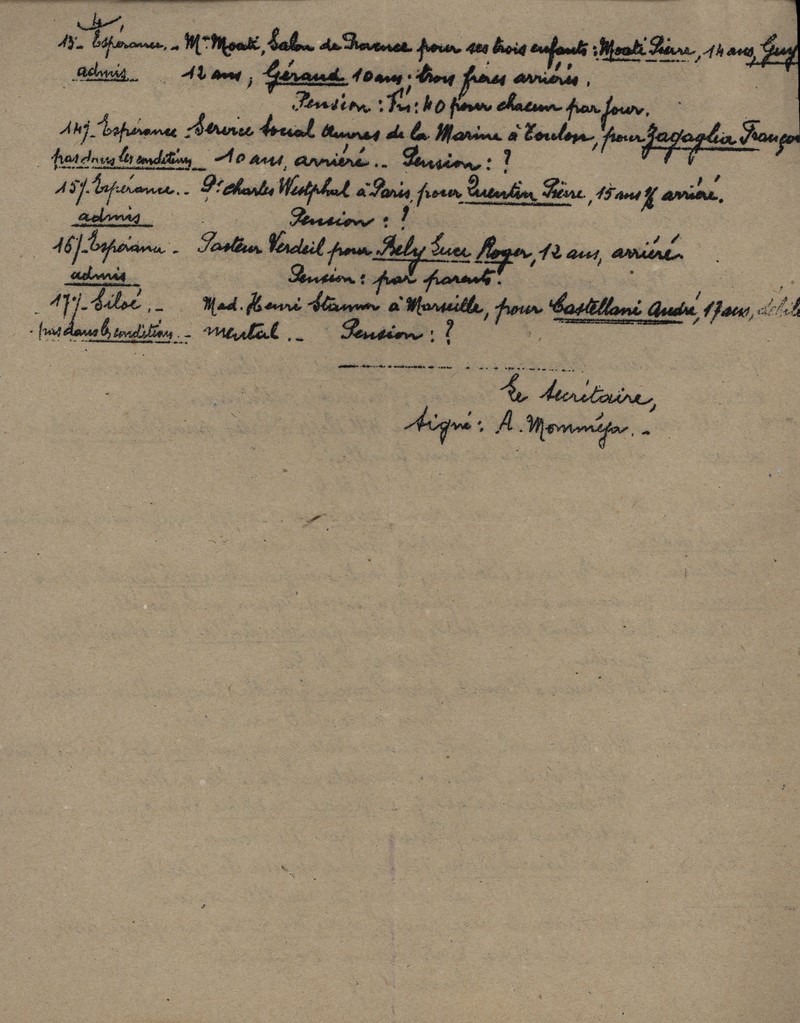 4
13- Espérance. - Mme Moati, Salon de Provence pour ses trois enfants: Moati Pierre, 14 ans, Guy
admis 12 ans, Gérard 10 ans; trois frères arriérés.
Pension: Frs: 40 pour chacun par jour.
14/- Espérance - Service Social Œuvres de la Marine à Toulon, pour Zagaglia Franço
pas dans les conditions 10 ans, arriéré. - Pension: ?
15/- Espérance. - Dr Charles Westphal à Paris, pour Quentin Pierre, 15 ans ½ arriéré.
admis Pension: ?
16/- Espérance - Pasteur Verdeil pour Bély Luce Roger, 12 ans, arriéré.
admis Pension: par parents.
17/- Siloé. - Mad. Henri à Marseille, pour Castellani André, 17 ans, débile
pas dans les conditions. - mental. - Pension: ?
Le Secrétaire,
Signé: A. Momméja. -